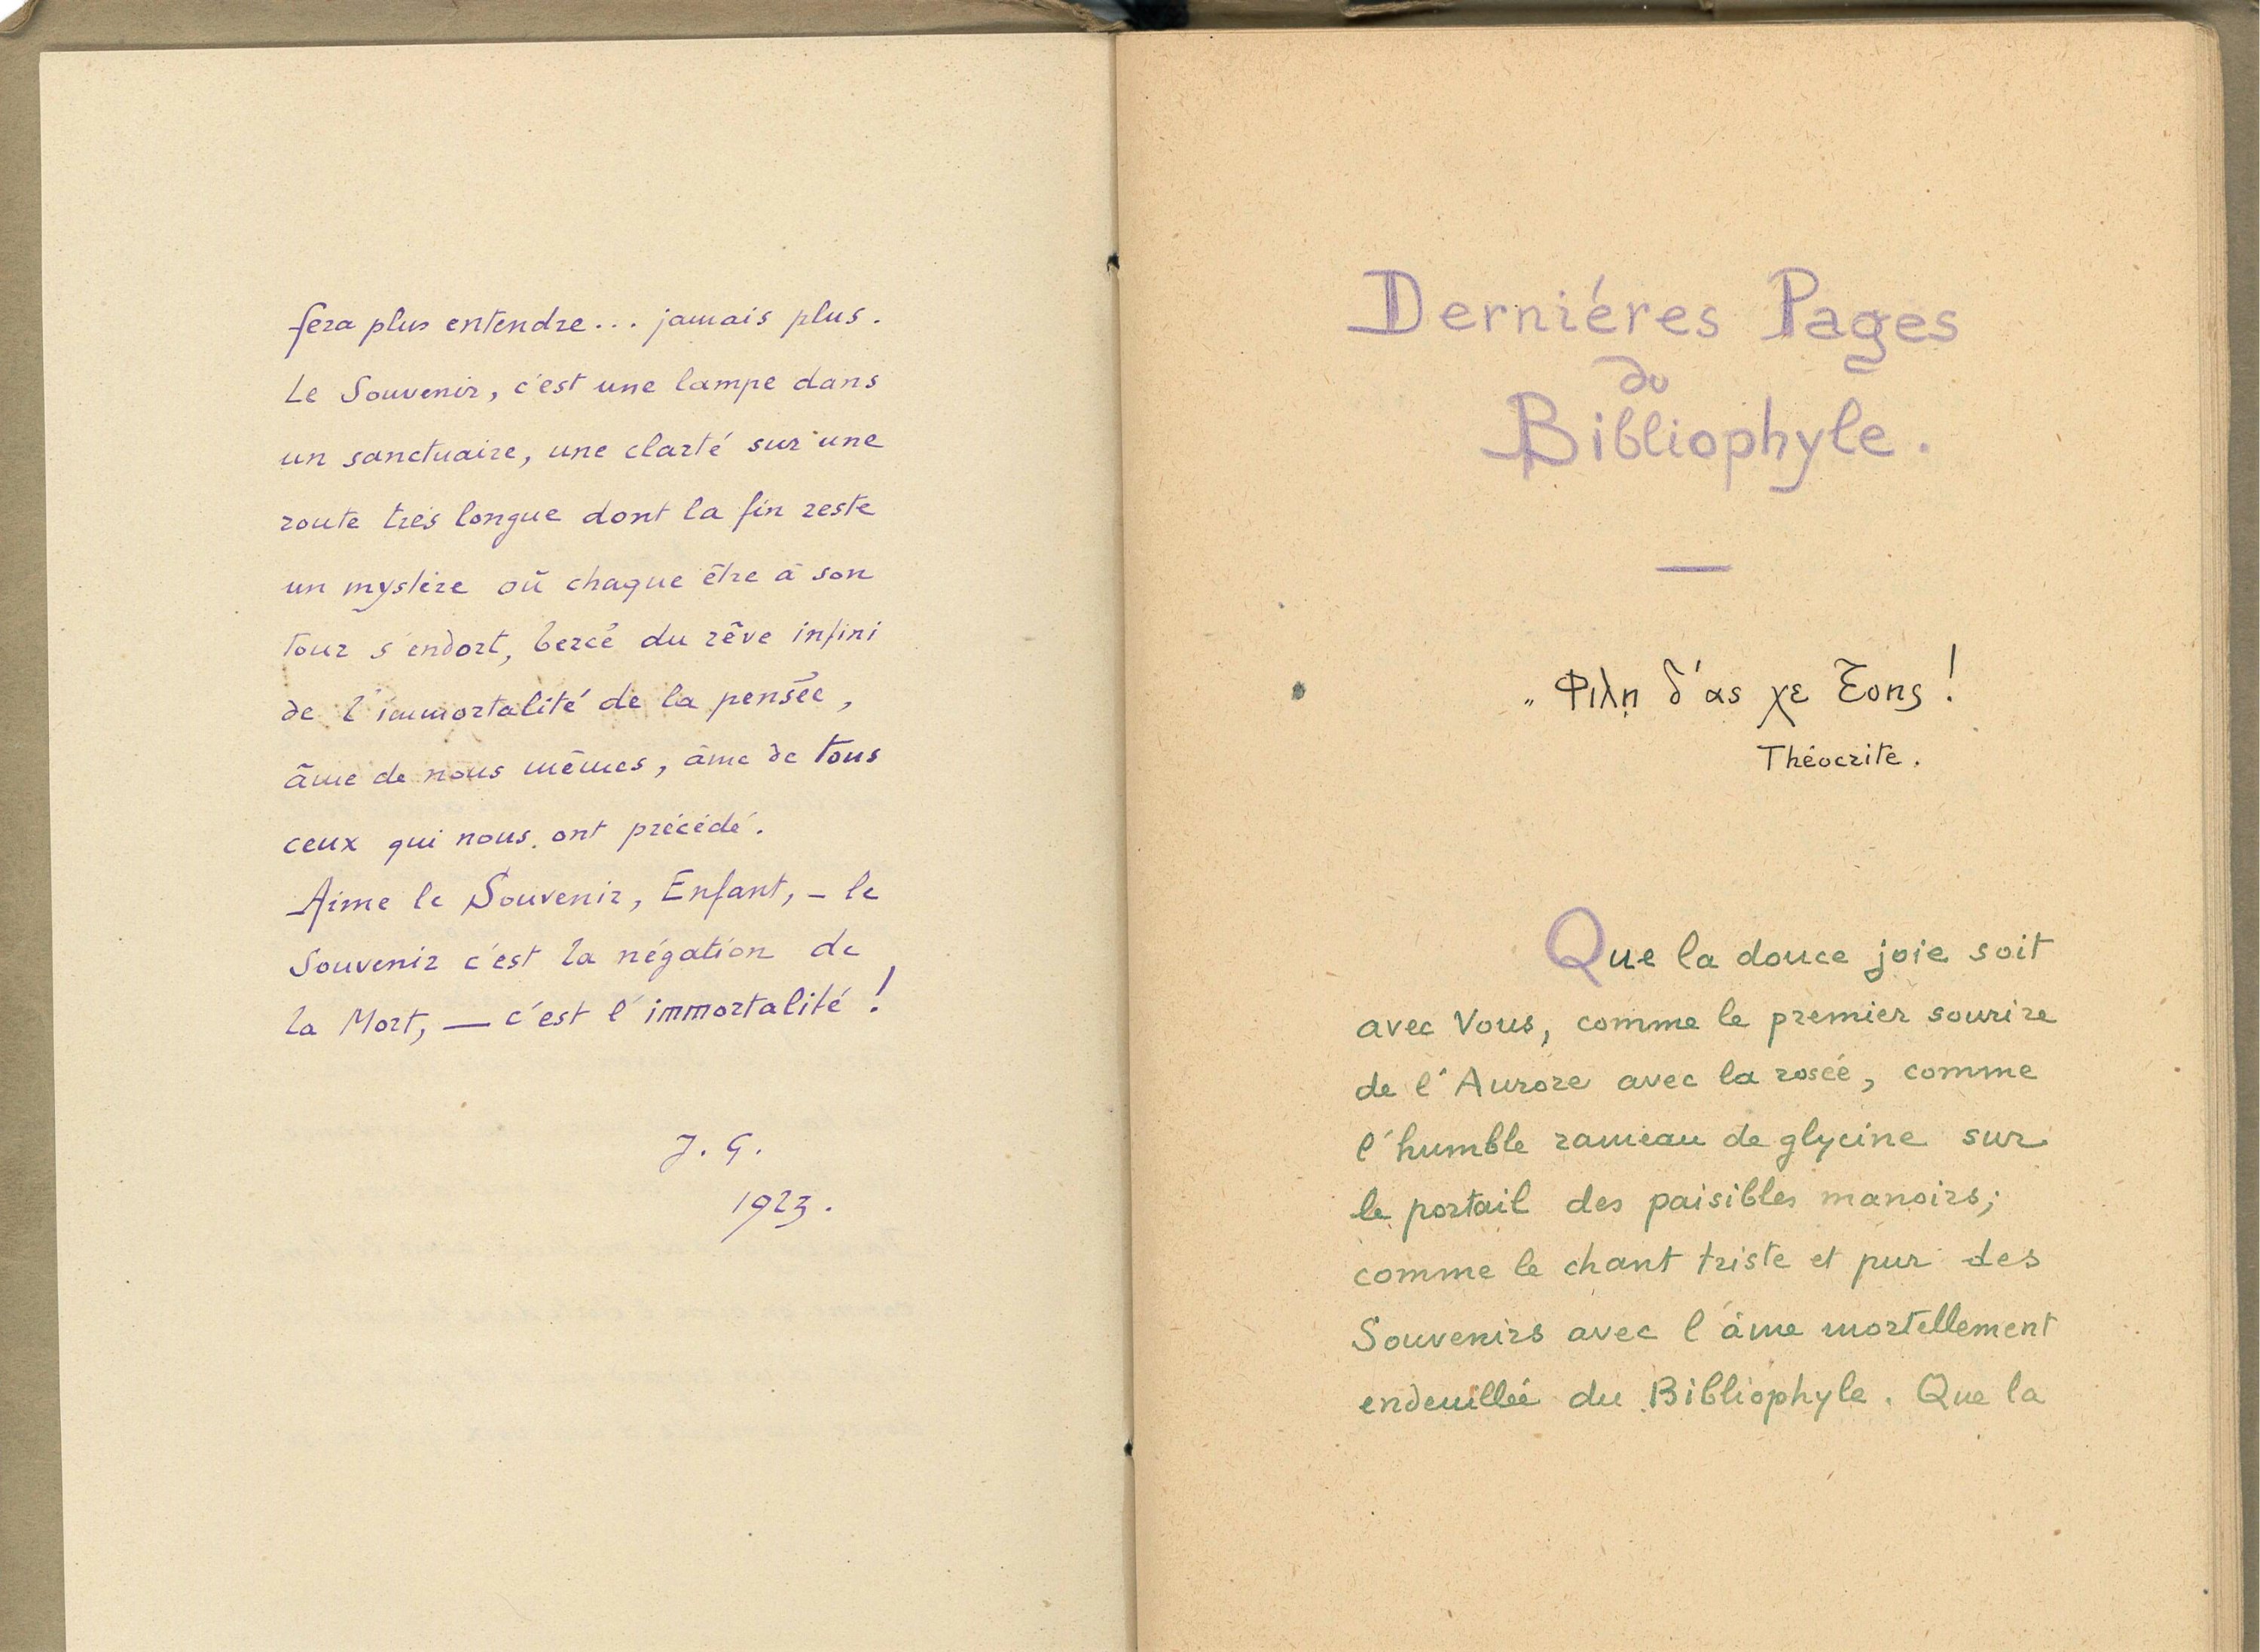 fera plus entendre... jamais plus.
Le Souvenir, c'est une lampe dans
un sanctuaire, une clarté sur une
route très longue dont la fin reste
un mystère où chaque être à son
tour s'endort, bercé du rêve infini
de l'immortalité de la pensée,
âme de nous mêmes, âme de tous
ceux qui nous ont précédé.
Aime le Souvenir, Enfant, – le
Souvenir c'est la négation de
la Mort, — c'est l'immortalité !
J. G.
1923.
Derniéres Pages
du
Bibliophyle.
„ Φιλη δ'ας χε ξονς !
Théocrite.
Que la douce joie soit
avec Vous, comme le premier sourire
de l'Aurore avec la rosée, comme
l'humble rameau de glycine sur
le portail des paisibles manoirs;
comme le chant triste et pur des
Souvenirs avec l'âme mortellement
endeuillée du Bibliophyle. Que la